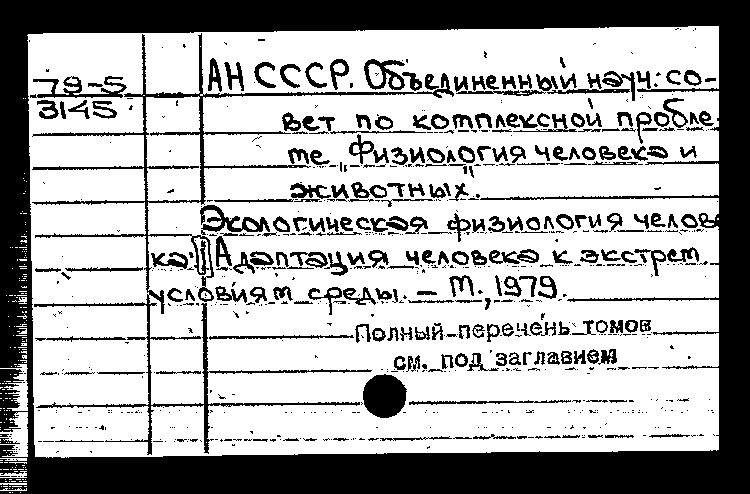 79-5
3145
АН СССР. Объединенный науч. со-
вет по комплексной пробле-
ме „Физиология человека и
животных".
Экологическая физиология челове
ка. [] Адаптация человека к экстрем.
условиям среды. — М., 1979.
Полный перечень томов
см. под заглавием